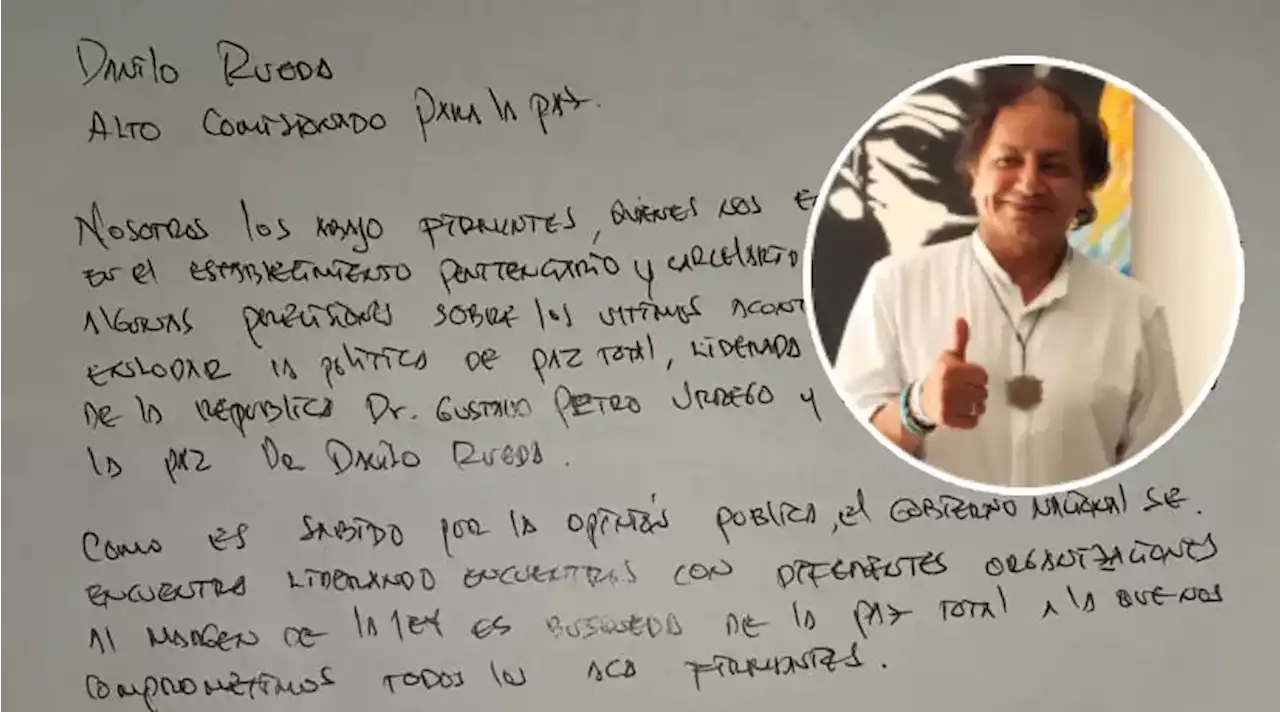 Danilo Rueda
Alto Comisionado para la paz.
Nosotros los abajo firmantes, quienes nos e
en el establecimiento penitenciario y carcelario
algunas precisiones sobre los ultimos acont
la politica de paz total, liderada
de la republica Dr. Gustavo Petro Urrego y
la paz Dr Danilo Rueda.
Como es sabido por la opinión publica, el gobierno nacional se.
encuentra liderando encuentras con diferentes organizaciones
al margen de la ley es busqueda de la paz total a la que nos
comprometimos todos los aca firmantes.